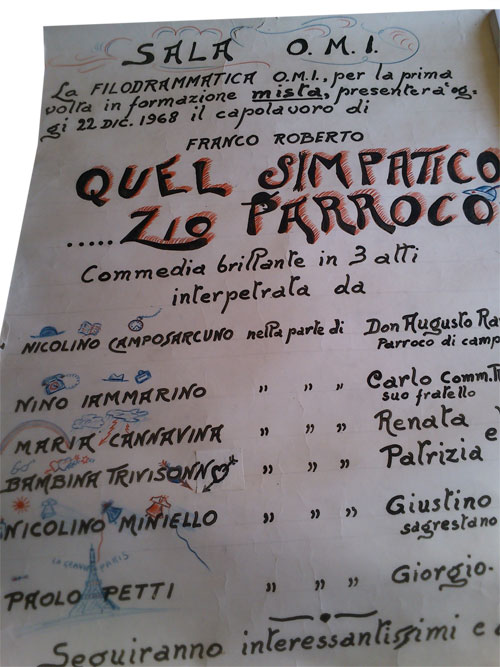 SALA O.M.I.
La FILODRAMMATICA O.M.I., per la prima
volta in formazione mista, presenterà og-
gi 22 DIC. 1968 il capolavoro di
FRANCO ROBERTO
QUEL SIMPATICO
..... ZIO PARROCO
Commedia brillante in 3 atti
interpetrata da
NICOLINO CAMPOSARCUNO nella parte di Don Augusto Ra
Parroco di camp
NINO IAMMARINO " " " Carlo Comm. T
suo fratello
MARIA CANNAVINA " " " Renata e
BAMBINA TRIVISONNO " " " Patrizia
NICOLINO MINIELLO " " " Giustino
sagrestano
LA GRANDE PARIS
PAOLO PETTI " " " Giorgio-
Seguiranno interessantissimi e